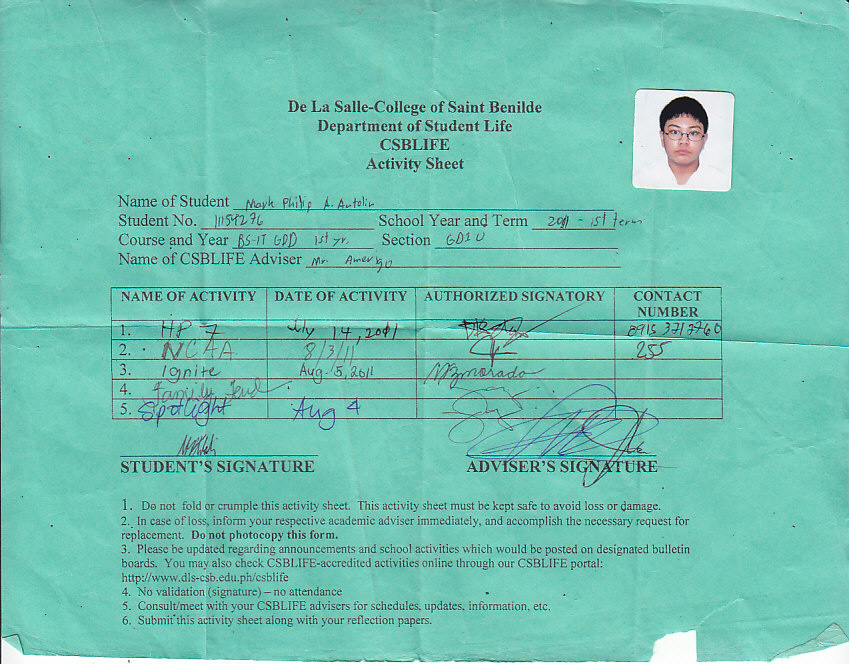 De La Salle-College of Saint Benilde
Department of Student Life
CSBLIFE
Activity Sheet
Name of Student Mark Philip A. Antolin
Student No. 11154276 School Year and Term 2011 - 1st term
Course and Year BS-IT GDD 1st yr. Section GD1U
Name of CSBLIFE Adviser Mr. Amerigo
NAME OF ACTIVITY DATE OF ACTIVITY AUTHORIZED SIGNATORY CONTACT NUMBER
1. HP 7 July 14, 2011 0915 3212760
2. NCAA 8/3/11 255
3. Ignite Aug. 5, 2011
4. Family Feud
5. Spotlight Aug 4
STUDENT'S SIGNATURE ADVISER'S SIGNATURE
1. Do not fold or crumple this activity sheet. This activity sheet must be kept safe to avoid loss or damage.
2. In case of loss, inform your respective academic adviser immediately, and accomplish the necessary request for
replacement. Do not photocopy this form.
3. Please be updated regarding announcements and school activities which would be posted on designated bulletin
boards. You may also check CSBLIFE-accredited activities online through our CSBLIFE portal:
http://www.dls-csb.edu.ph/csblife
4. No validation (signature) – no attendance
5. Consult/meet with your CSBLIFE advisers for schedules, updates, information, etc.
6. Submit this activity sheet along with your reflection papers.